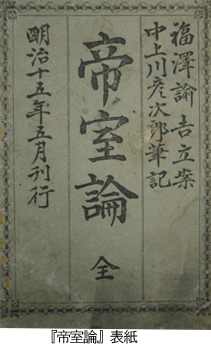 福澤諭吉立案
中上川彦次郎筆記
帝室論
全
明治十五年五月刊行
『帝室論』表紙